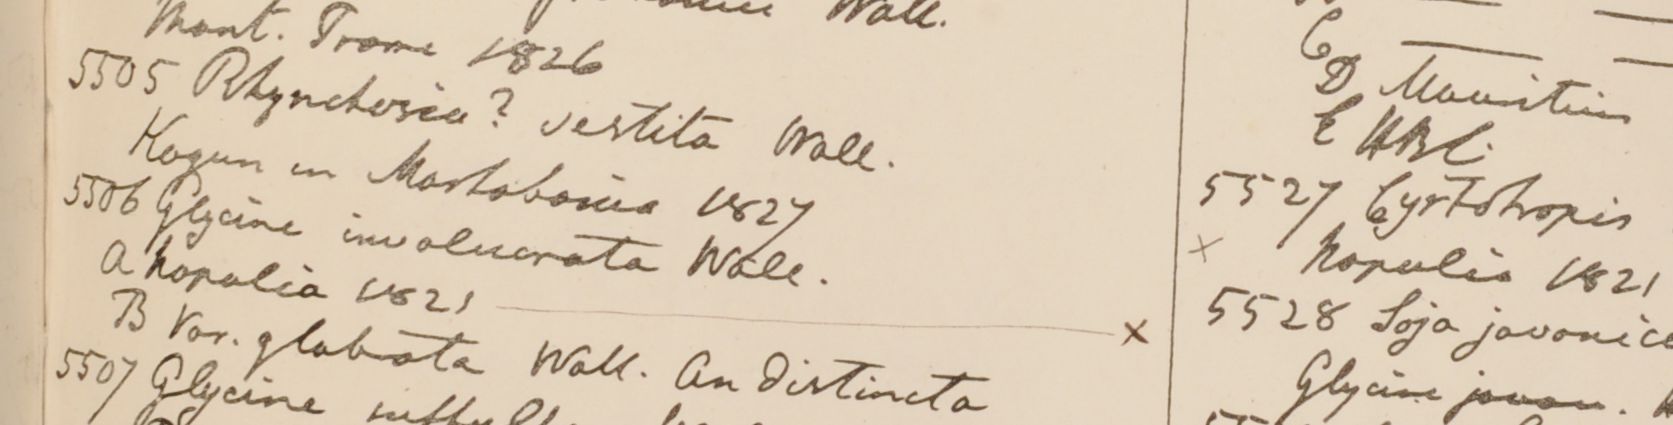 Wall.
Mont. Trome 1826
5505 Rhynchosia? vestita Wall.
Kogun in Martabania 1827
5506 Glycine involucrata Wall.
A Napalia 1821 x
B Var. glabrata Wall. An distincta
5507 Glycine
C
D Mauritius
E HBC.
5527 Cyrtotropis
x Napalia 1821
5528 Soja javanica
Glycine javan.